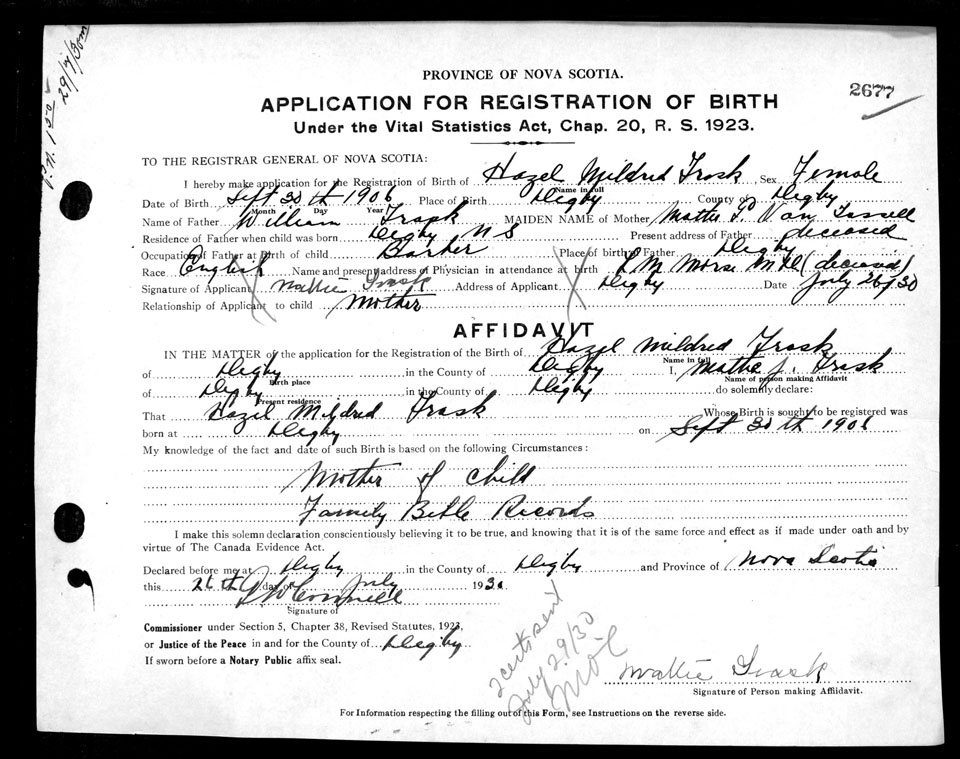 29/7/30
PROVINCE OF NOVA SCOTIA.
2677
APPLICATION FOR REGISTRATION OF BIRTH
Under the Vital Statistics Act, Chap. 20, R. S. 1923.
TO THE REGISTRAR GENERAL OF NOVA SCOTIA:
I hereby make application for the Registration of Birth of Hazel Mildred Trask Sex Female
Name in full
Date of Birth Sept 30th 1906 Place of Birth Digby County of Digby
Month Day Year
Name of Father William Trask MAIDEN NAME of Mother Mattie Van Tassell
Residence of Father when child was born Digby N S Present address of Father deceased
Occupation of Father at Birth of child Barber Place of birth of Father Digby
Race English Name and present address of Physician in attendance at birth Morse M D (deceased)
Signature of Applicant Mattie Trask Address of Applicant Digby Date July 26/30
Relationship of Applicant to child Mother
AFFIDAVIT
IN THE MATTER of the application for the Registration of the Birth of Hazel Mildred Trask
Name in full
of Digby in the County of Digby I, Mattie J. Trask
Birth place Name of person making Affidavit
of Digby in the County of Digby do solemnly declare:
Present residence
That Hazel Mildred Trask Whose Birth is sought to be registered was
born at Digby on Sept 30th 1906
My knowledge of the fact and date of such Birth is based on the following Circumstances:
Mother of Child
Family Bible Records
I make this solemn declaration conscientiously believing it to be true, and knowing that it is of the same force and effect as if made under oath and by
virtue of The Canada Evidence Act.
Declared before me at Digby in the County of Digby and Province of Nova Scotia
this 26th day of July 1930
Signature of
Commissioner under Section 5, Chapter 38, Revised Statutes, 1923,
or Justice of the Peace in and for the County of Digby
If sworn before a Notary Public affix seal.
2 certs sent
July 29/30
Mattie Trask
Signature of Person making Affidavit.
For Information respecting the filling out of this Form, see Instructions on the reverse side.